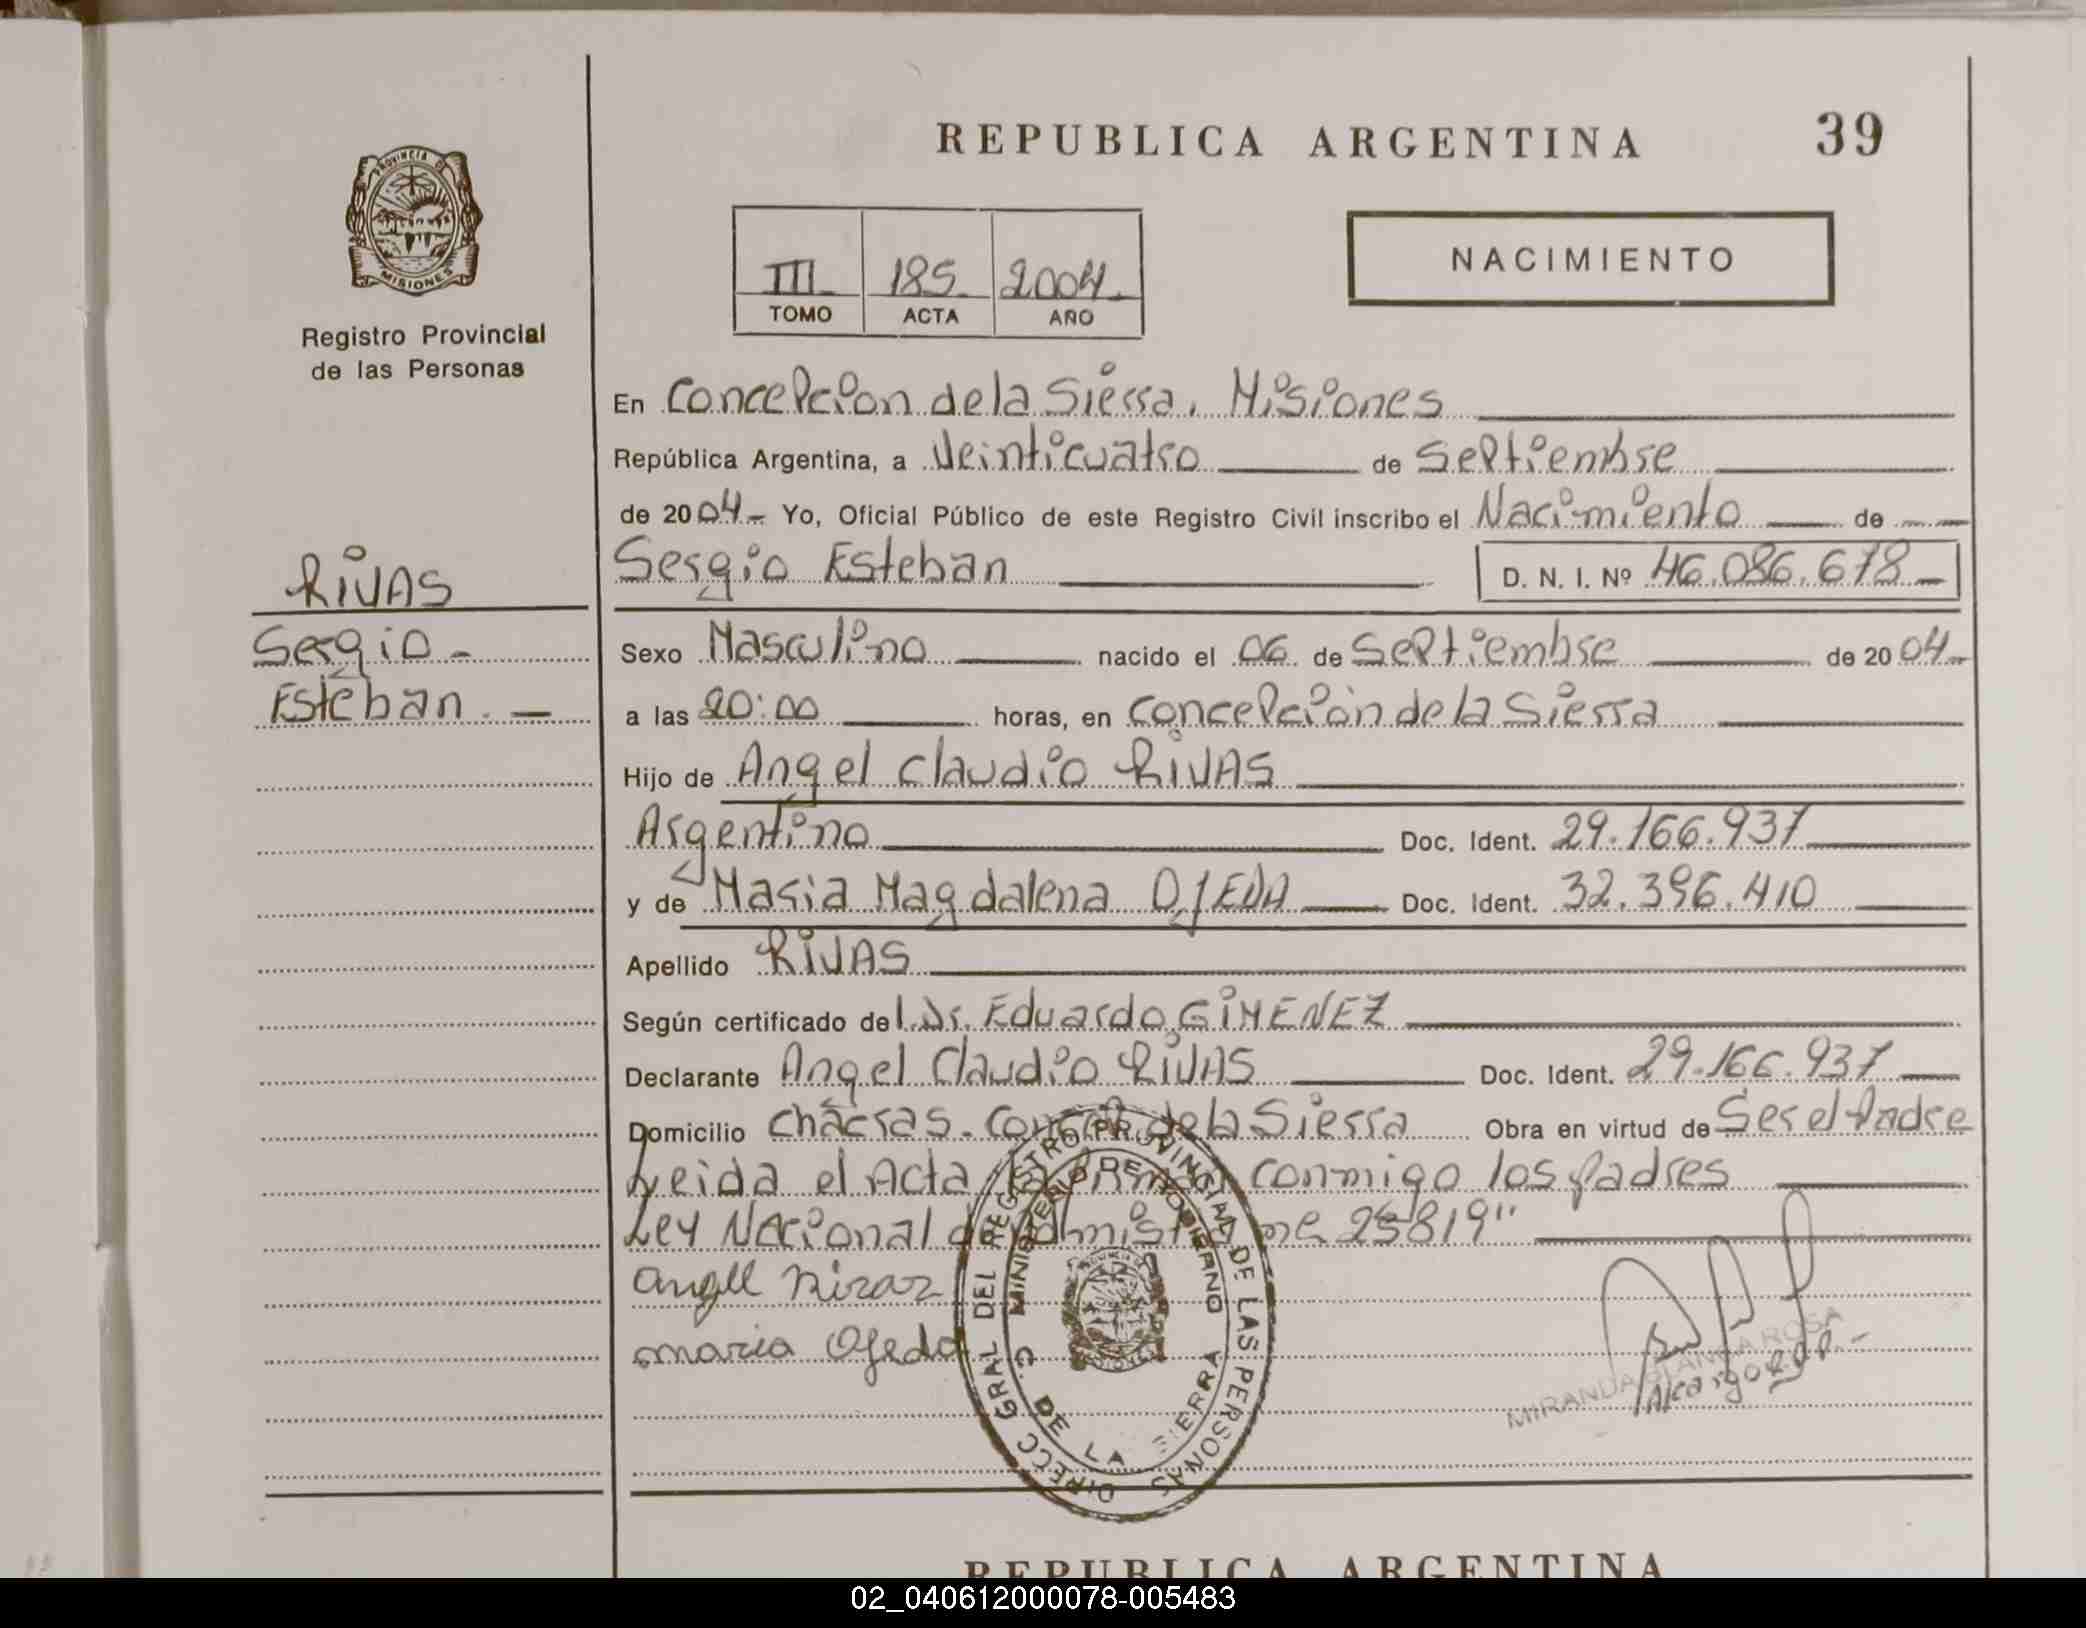 REPUBLICA ARGENTINA
39
PROVINCIA D
MISIONES
Registro Provincial
de las Personas
III 185 2004
TOMO ACTA AÑO
NACIMIENTO
En Concepcion de la Sierra, Misiones
República Argentina, a Veinticuatro de Septiembre
de 2004 Yo, Oficial Público de este Registro Civil inscribo el Nacimiento de
Sergio Esteban D. N. I. Nº 46.086.678
RIVAS
Sergio
Esteban
Sexo Masculino nacido el 06 de Septiembre de 2004
a las 20:00 horas, en Concepción de la Sierra
Hijo de Angel Claudio RIVAS
Argentino Doc. Ident. 29.166.937
y de Maria Magdalena OJEDA Doc. Ident. 32.396.410
Apellido RIVAS
Según certificado del Dr. Eduardo GIMENEZ
Declarante Angel Claudio RIVAS Doc. Ident. 29.166.937
Domicilio Chacras. de la Sierra Obra en virtud de Ser el Padre
Leida el Acta la firman conmigo los padres
Ley Nacional de Admistia nº 25819"
Angel Rivas
maria Ojeda
DIRECC GRAL DEL REGISTRO PROVINCIAL DE LAS PERSONAS
MINISTERIO DE GOBIERNO
C. DE LA SIERRA
MIRANDA BLANCA ROSA
A/cargo
REPUBLICA ARGENTINA
02_040612000078-005483